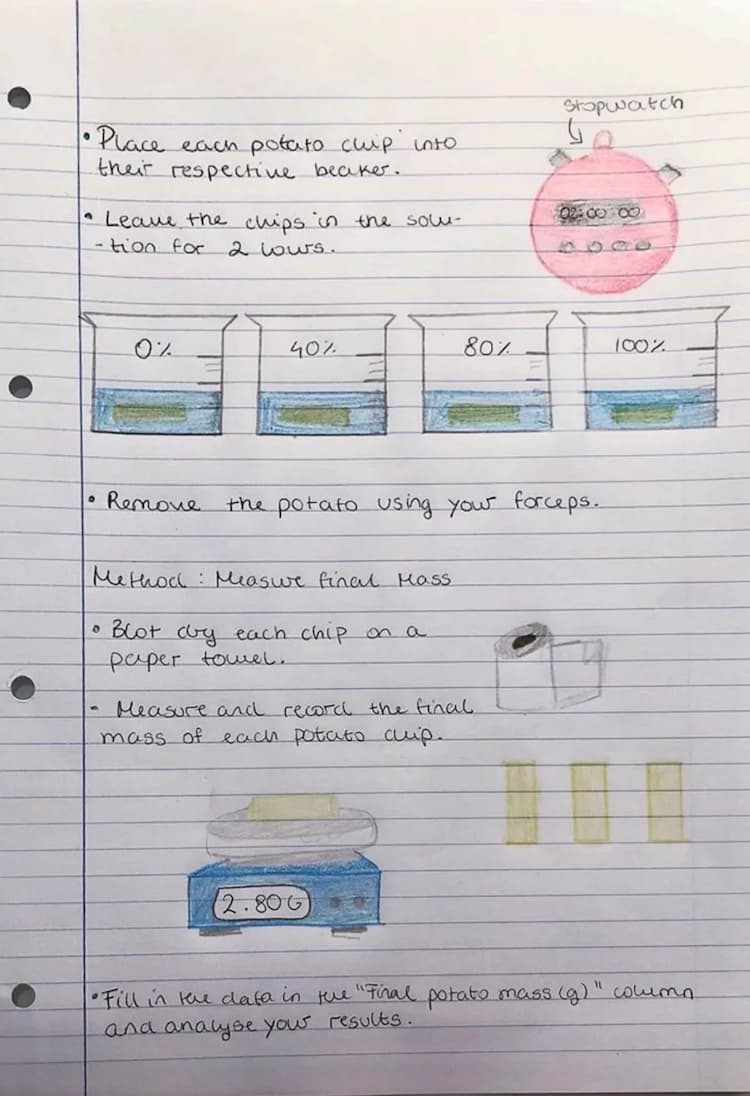 stopwatch
• Place each potato chip into
their respective beaker.
02:00:00
• Leave the chips in the solu-
-tion for 2 hours.
0% 40% 80% 100%
• Remove the potato using your forceps.
Method : Measure final Mass
• Blot dry each chip on a
paper towel.
- Measure and record the final
mass of each potato chip.
2.80G
• Fill in the data in the "Final potato mass (g)" column
and analyse your results.